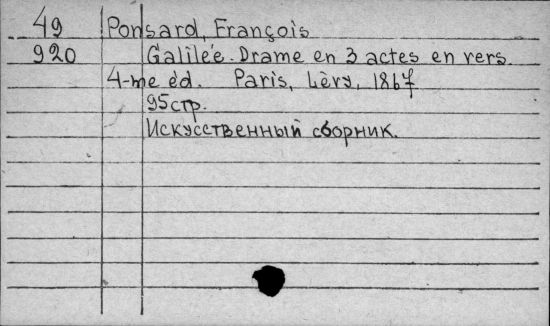 49 Ponsard, François
920 Galilée. Drame en 3 actes en vers.
4-me éd. Paris, Lévy, 1867
95 стр.
Искусственный сборник.